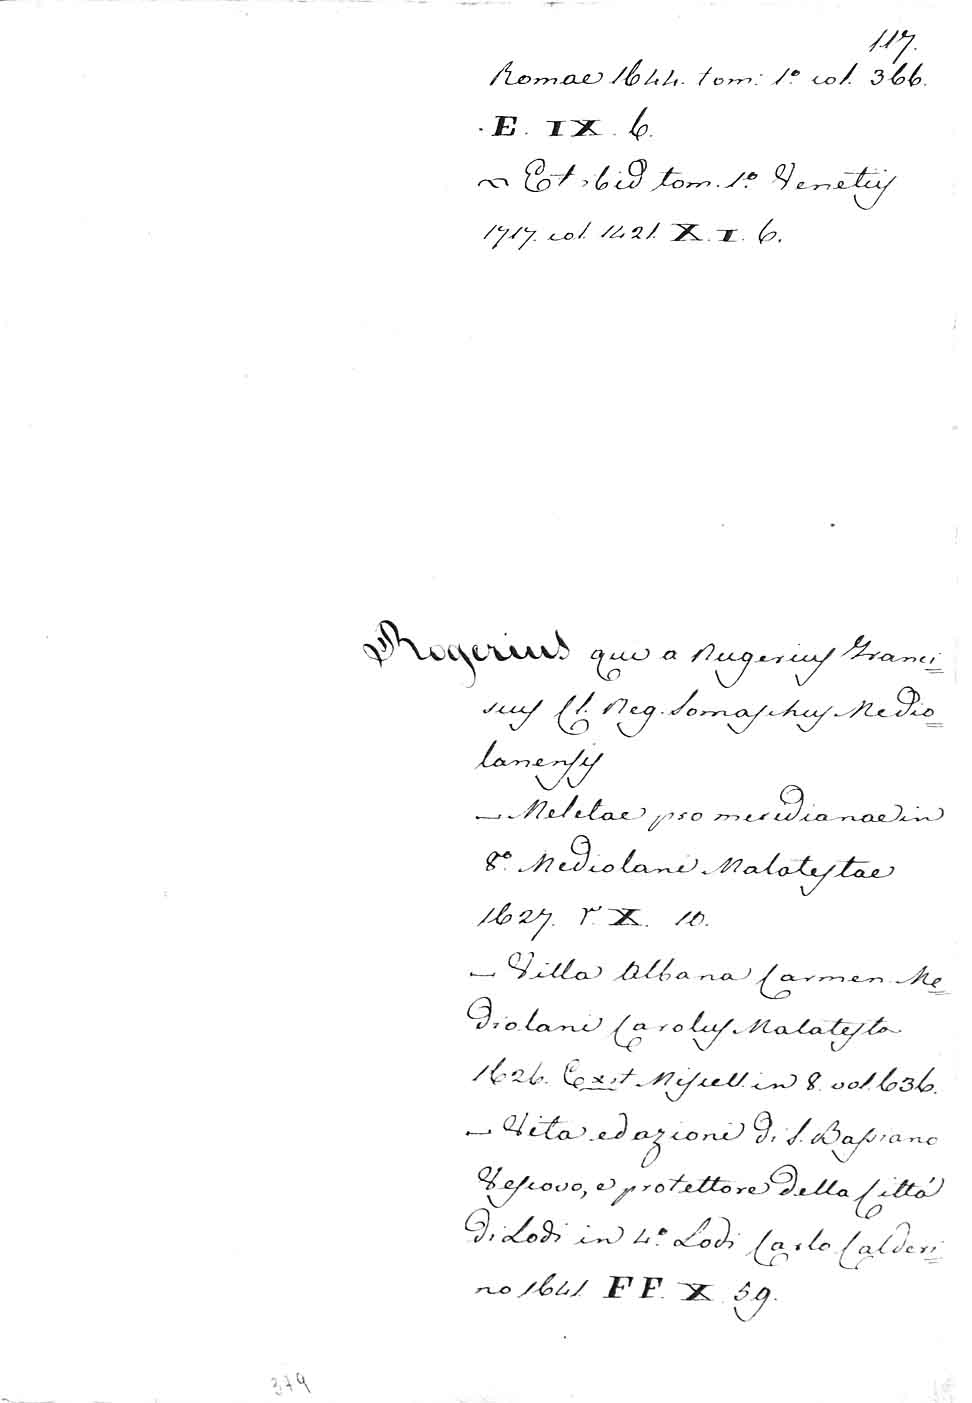 117.
Romae 1644. tom: 1.º col. 366.
. E. IX. 6.
~ Et ibid tom. 1.º Venetiis
1717. col. 1421. X. I. 6.
Rogerius que a Rugerius Franci=
scus Cl. Reg. Somaschus Medio=
lanensis
— Meletae pro meridianae in
8.º Mediolani Malatestae
1627. r. X. 10.
— Villa Albana Carmen Me=
diolani Carolus Malatesta
1626. Exst Miscell. in 8. vol. 636.
— Vita ed azioni di S. Bassiano
Vescovo, e protettore della Città
di Lodi in 4.º Lodi Carlo Calderi=
no 1641 FF. X 59.
379